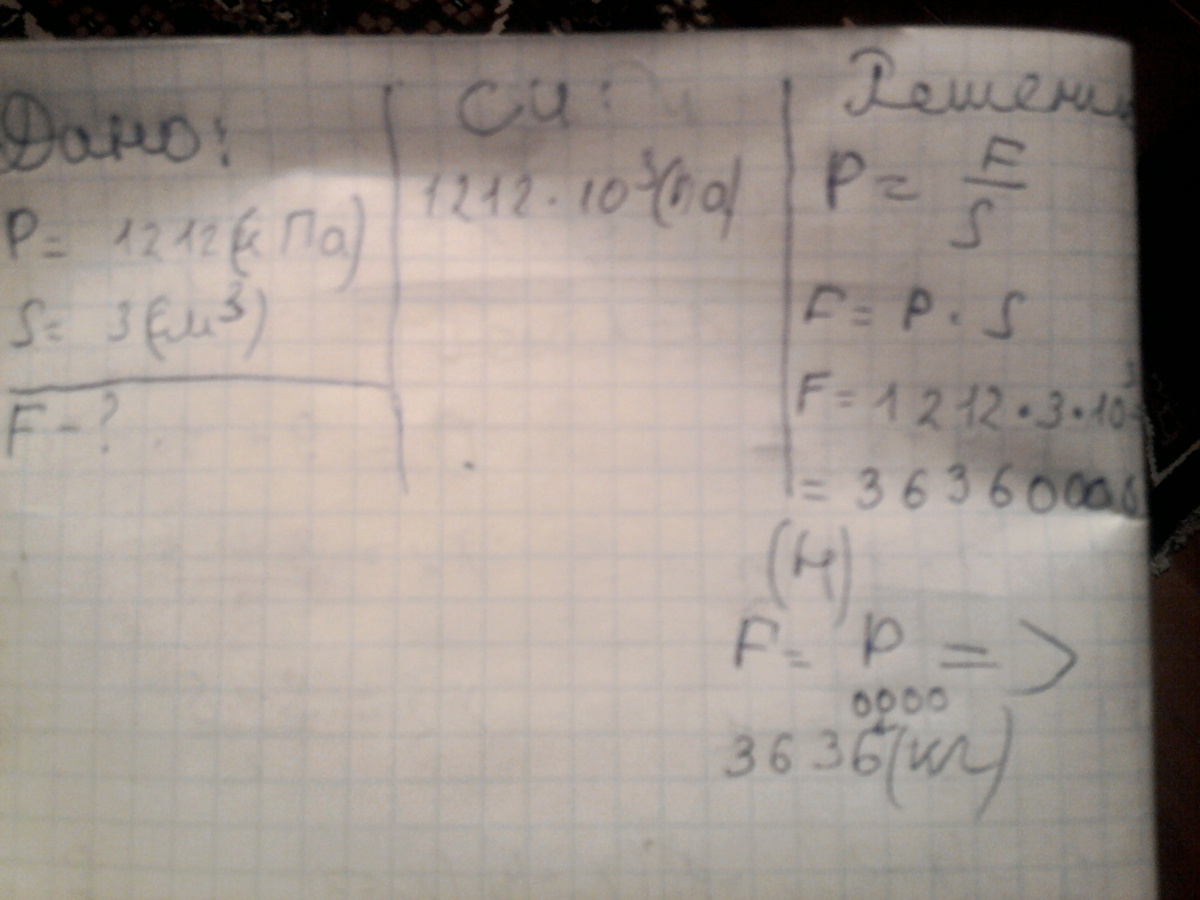 Дано:
P = 1212 (кПа)
S = 3 (м³)
F - ?
СИ:
1212 · 10³ (Па)
Решени
P = F/S
F = P · S
F = 1212 · 3 · 10³
= 3636000
(Н)
F = P =>
0000
3636 (кг)